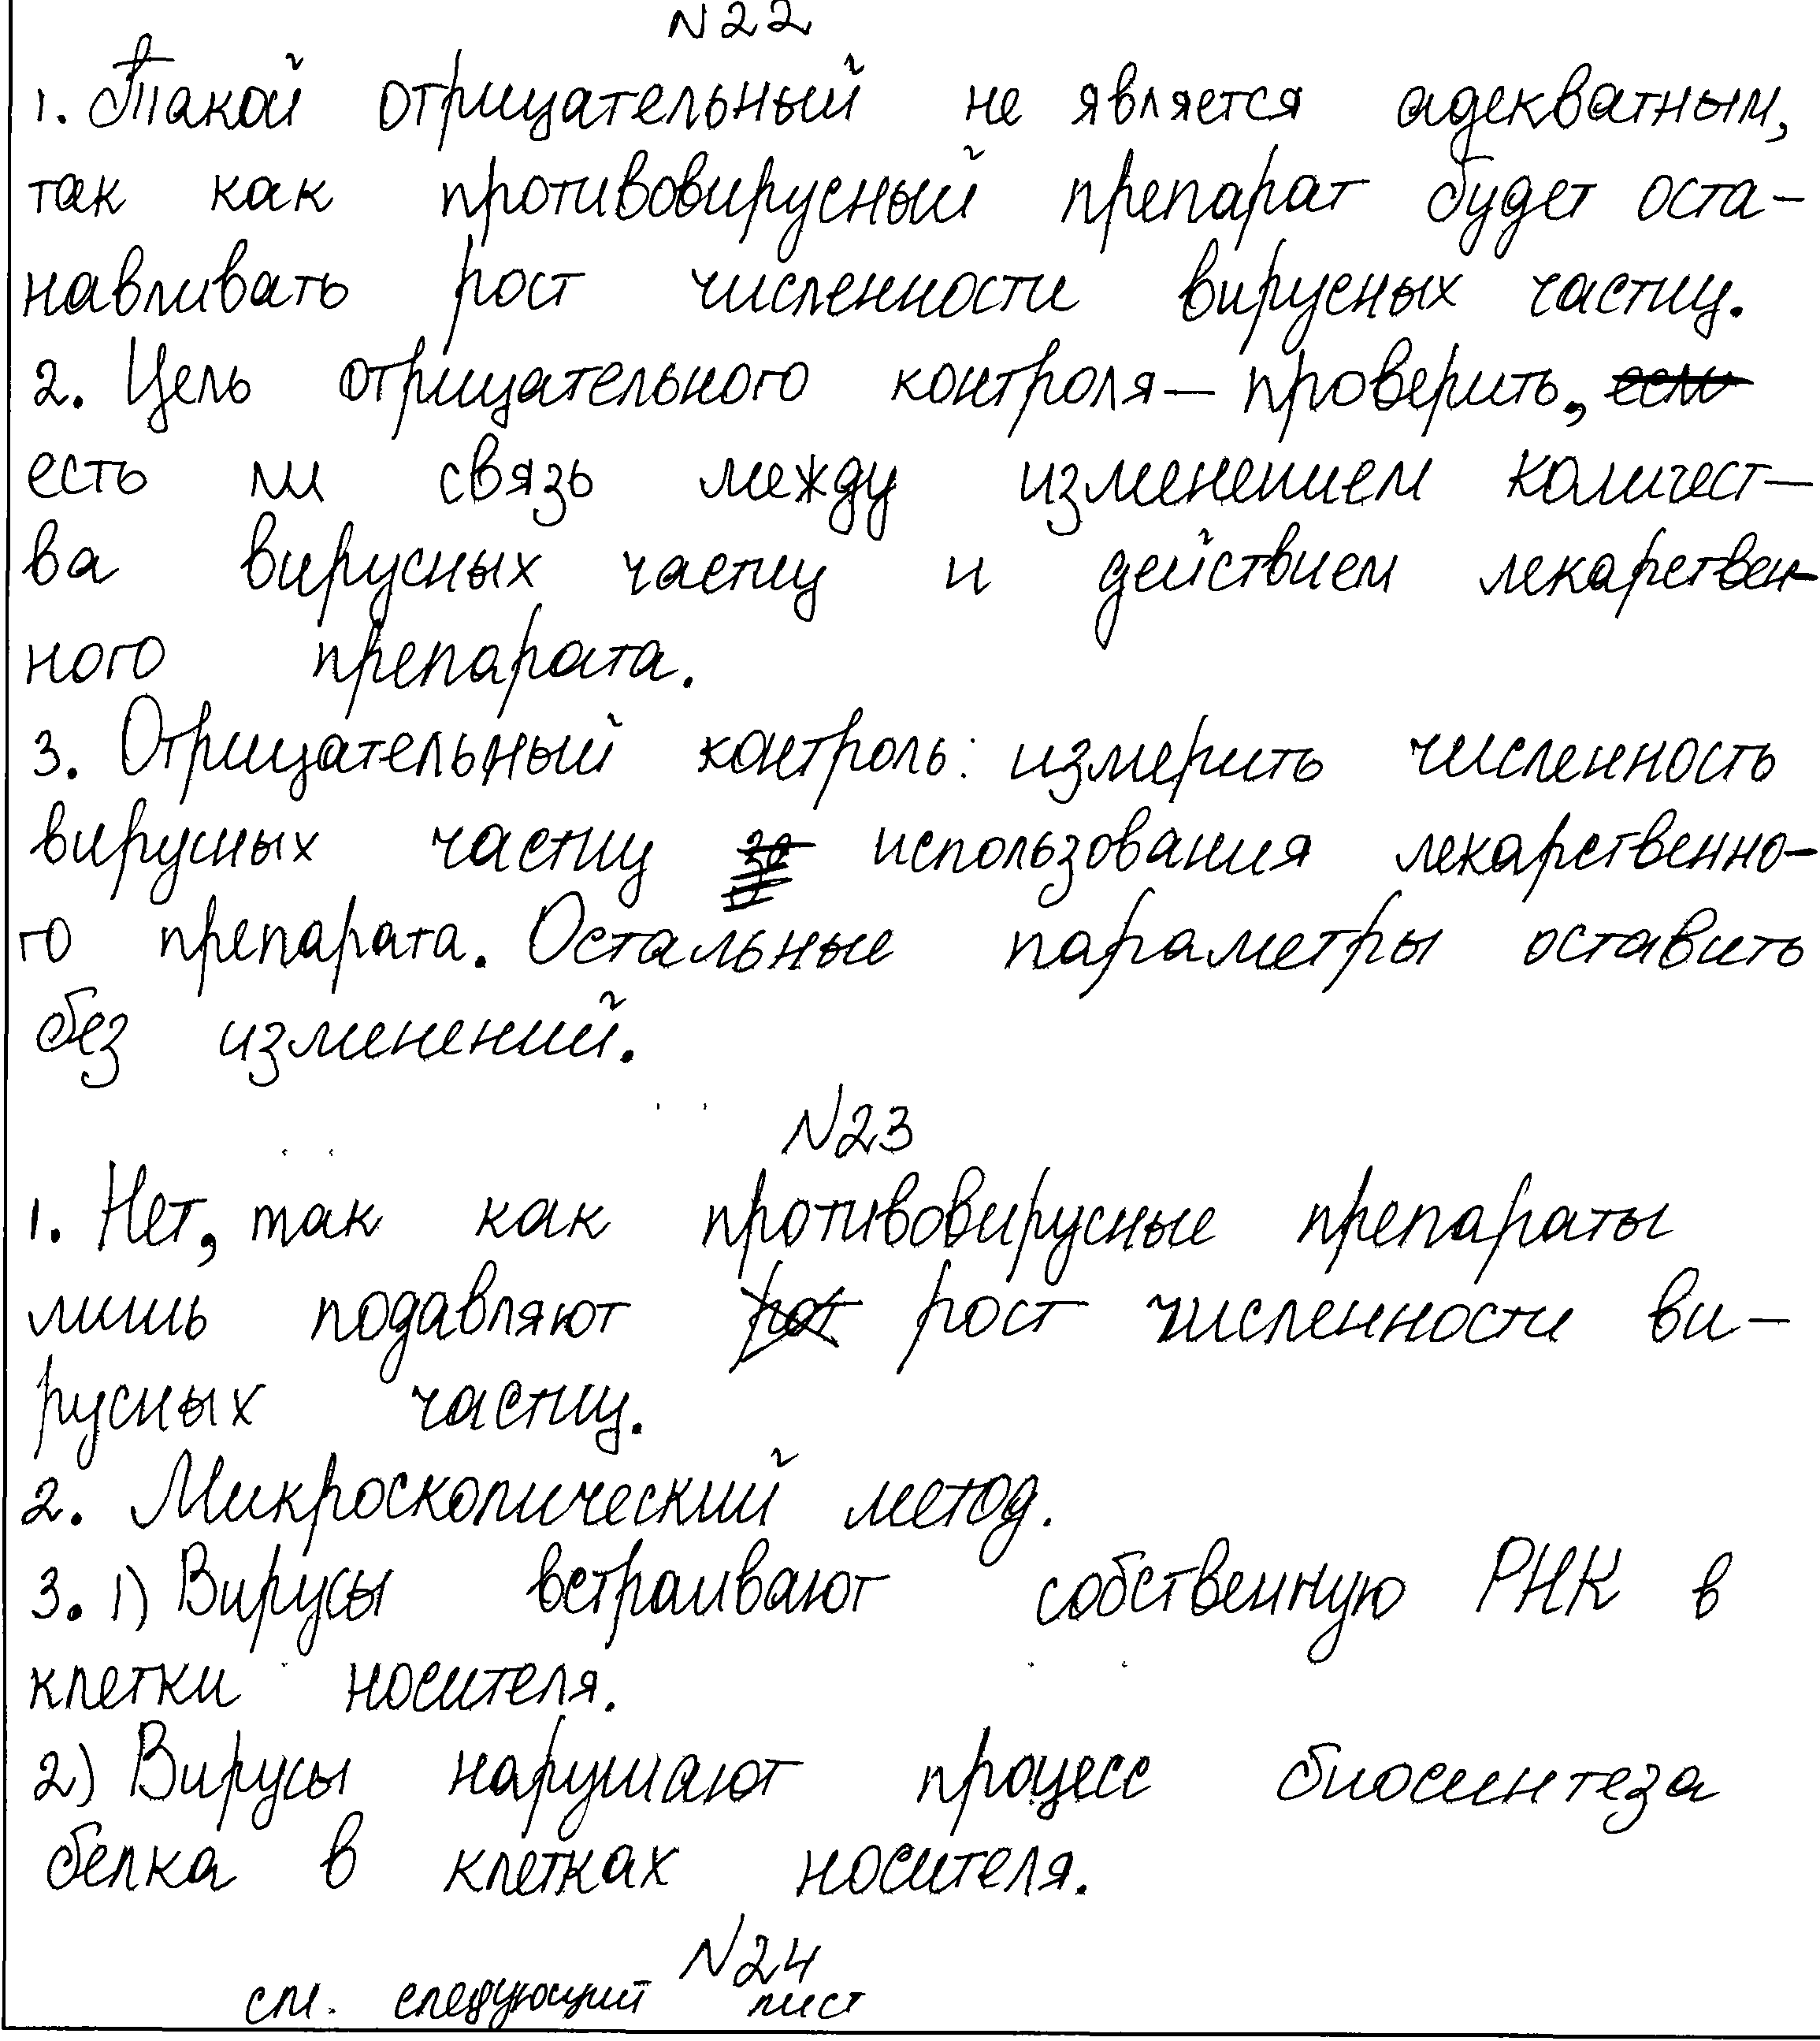 N22
1. Такой отрицательный не является адекватным,
так как противовирусный препарат будет оста-
навливать рост численности вирусных частиц.
2. Цель отрицательного контроля – проверить, если
есть ли связь между изменением количест-
ва вирусных частиц и действием лекарствен-
ного препарата.
3. Отрицательный контроль: измерить численность
вирусных частиц использования лекарственно-
го препарата. Остальные параметры оставить
без изменений.
N23
1. Нет, так как противовирусные препараты
лишь подавляют рост численности ви-
русных частиц.
2. Микроскопический метод.
3. 1) Вирусы встраивают собственную РНК в
клетки носителя.
2) Вирусы нарушают процесс биосинтеза
белка в клетках носителя.
N24
см. следующий лист